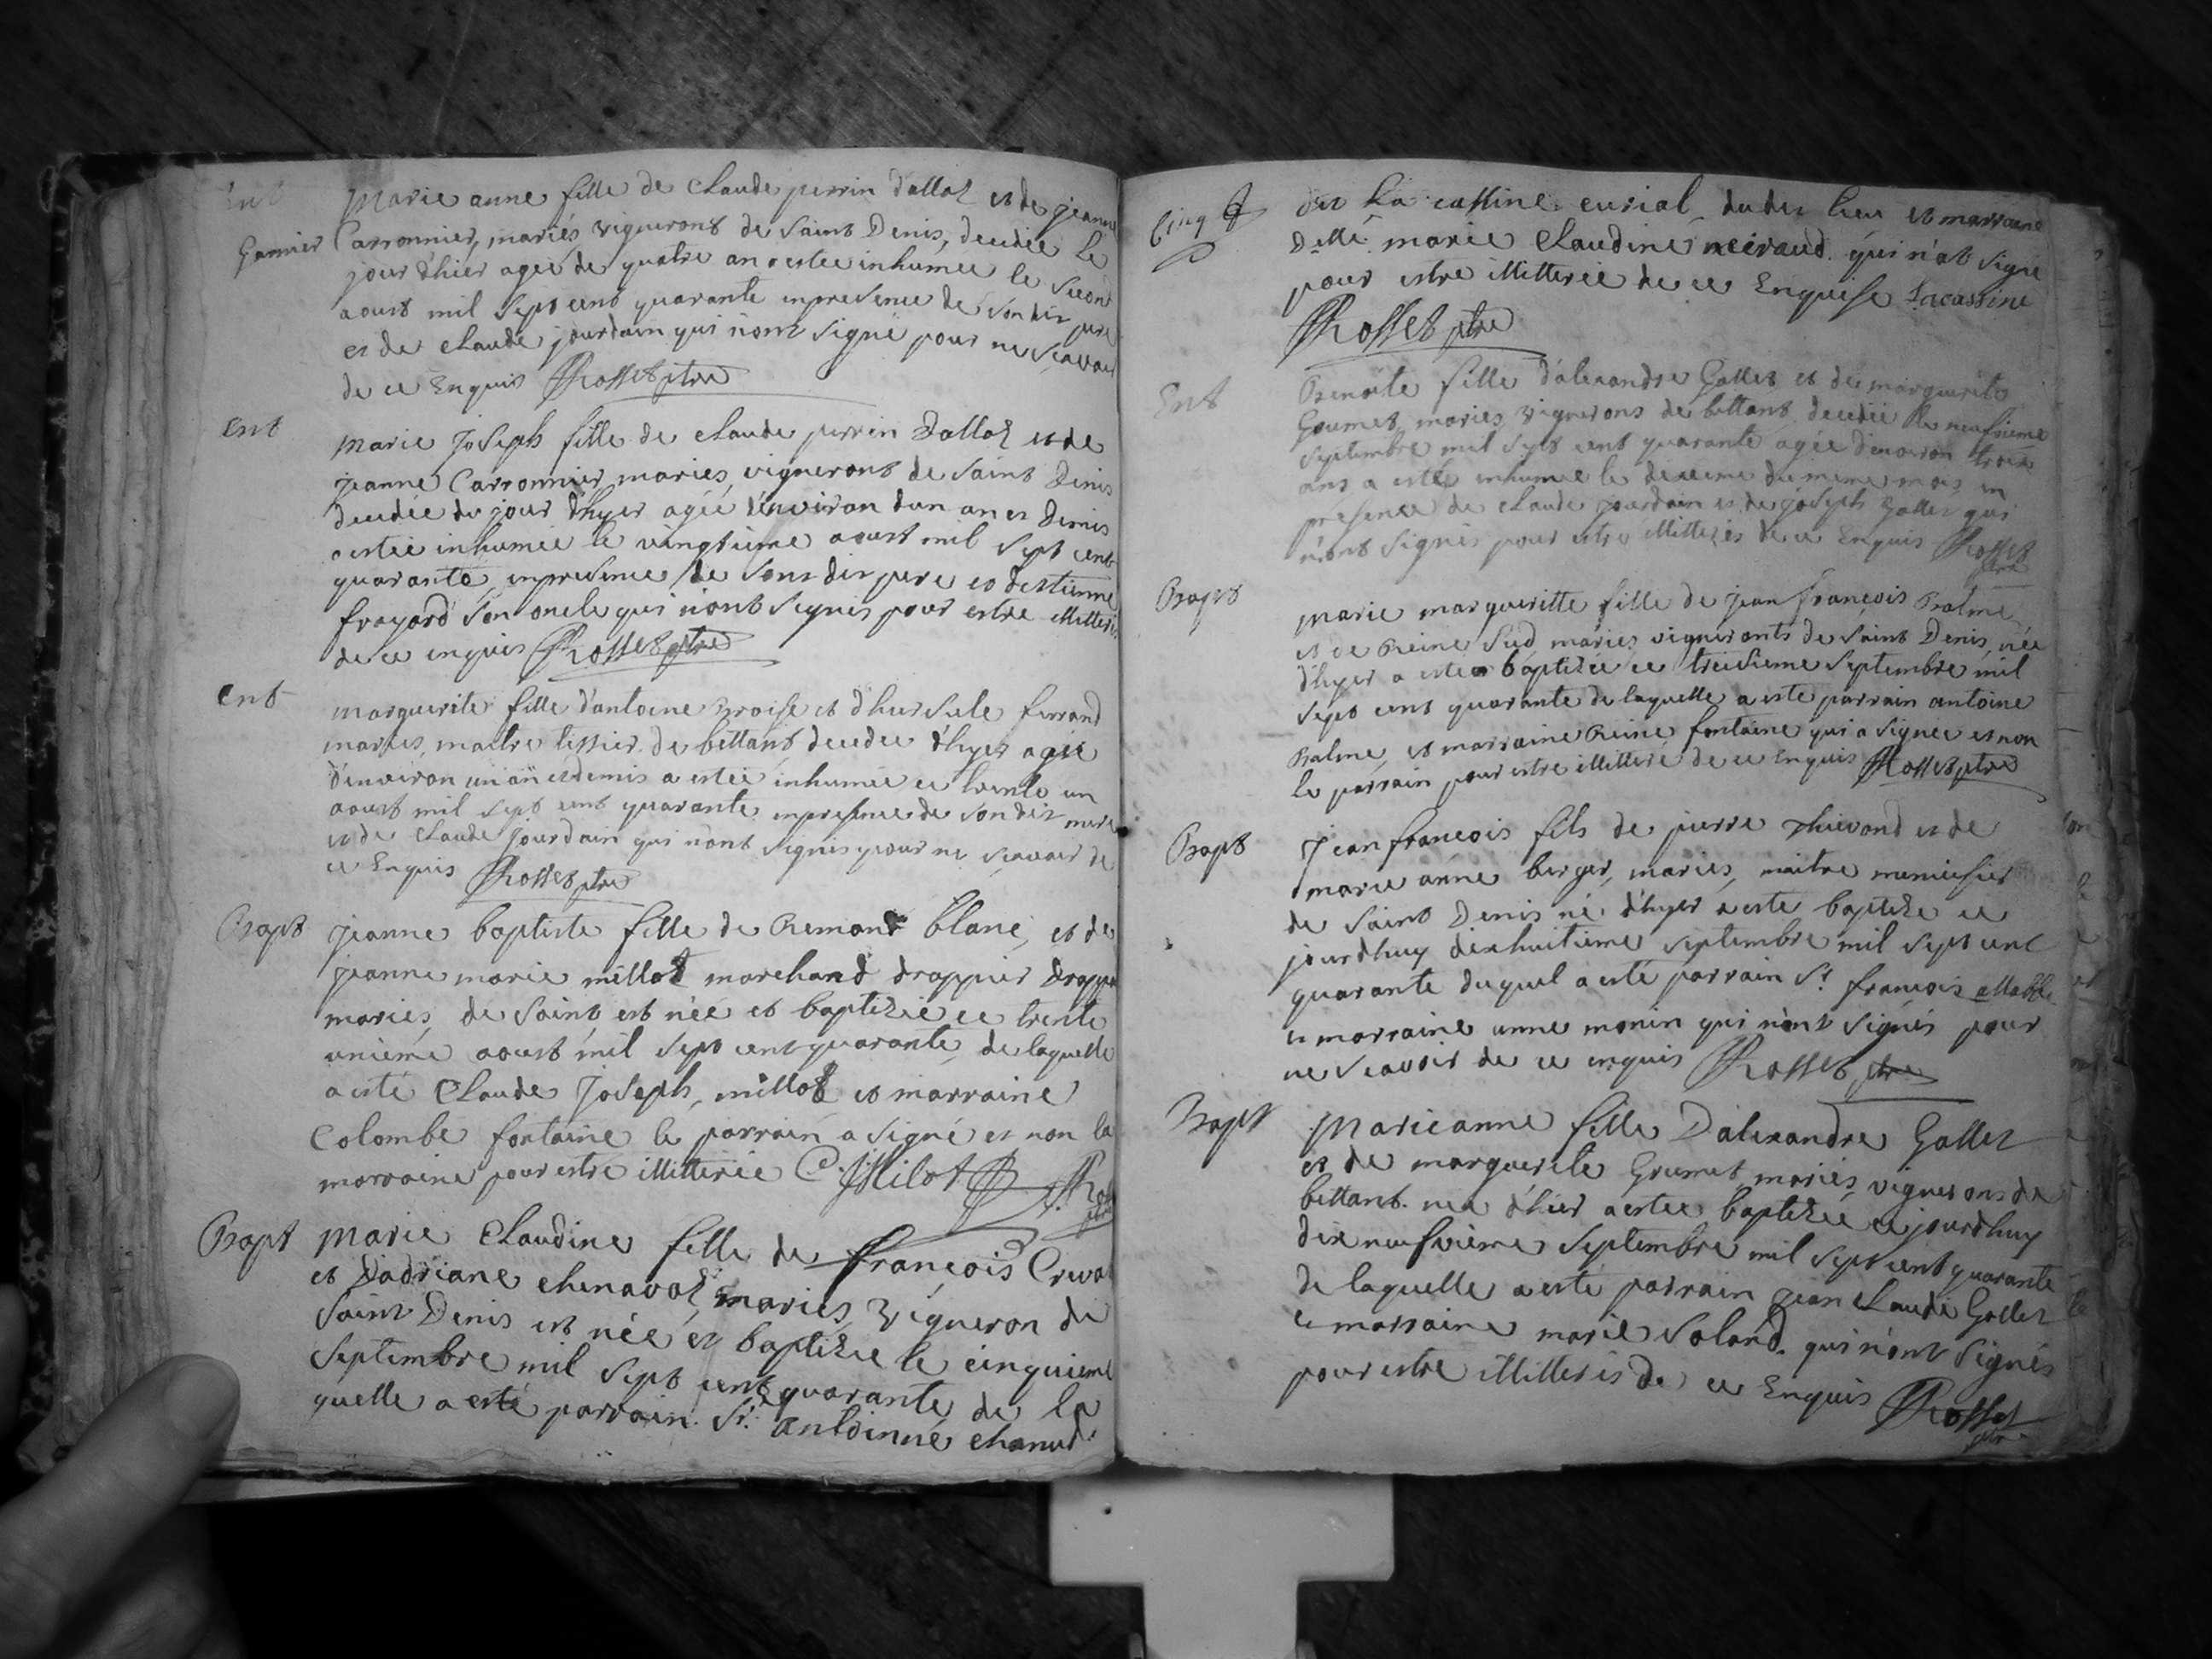 Ent
Marie anne fille de claude perrin dalloz et de jeanne
Garnier Carronnier, mariés vignerons de Saint Denis, decedée le
jour d'hier agée de quatre an a estée inhumée le second
aoust mil sept cent quarante en presence de son dit pere
et de claude jourdain qui n'ont signé pour ne scavoir
de ce Enquis Rosset ptre
Ent
Marie Joseph fille de claude perrin Dalloz et de
jeanne Carronnier mariés, vignerons de Saint Denis
decedée du jour d'hyer agée d'environ dun an et Demis
a estée inhumée le vingtieme aoust mil sept cent
quarante, en presence de sons dit pere et destienne
frayard son oncle qui n'ont signés pour estre illitterés
de ce enquis Rosset ptre
Ent
marguerite fille d'antoine et d'hursule ferrand
mariés, maitre tissier de bettant, decedee d'hyer agée
d'environ un an et demis a estée inhumée ce trente un
aoust mil sept cent quarante en presence de son dit mere
et de claude jourdain qui n'ont signés pour ne scavoir de
ce Enquis Rosset ptre
Bapt
jeanne baptiste fille de Remond blanc, et de
jeanne marie milloz marchand drappier
mariés, de Saint est née et baptizée ce trente
unième aoust mil sept cent quarante de laquelle
a esté Claude Joseph millot et marraine
Colombe fontaine le parrain a signé et non la
marraine pour estre illitterée C. J Milot
Bapt
Marie Claudine fille de françois
et Dadriane chenavaz mariés Vigneron de
Saint Denis est née et baptizée le cinquieme
Septembre mil sept cent quarante de la
quelle a esté parrain Sr. antoinne
Cinq
dit la cassine curial dudit lieu et marraine
Delle marie Claudine neiraud qui n'at signé
pour estre illitterée de ce Enquise Lacassine
Rosset ptre
Ent
Benoite fille d'alexandre Gallet et de marguerite
Goumet, mariés vignerons de bettant decedée le neufvieme
septembre mil sept cent quarante agée denviron trois
ans a estée inhumée le dixieme du meme mois en
presence de claude jourdain et de joseph Gallet qui
n'ont signés pour estre illitterés de ce Enquis Rosset
ptre
Bapt
Marie margueritte fille de jean françois Balme
et de Reine Sud mariés vignerons de Saint Denis, née
d'hyer a estée baptizée ce treisieme septembre mil
sept cent quarante de laquelle a esté parrain antoine
Balme et marraine Reine fontaine qui a signée et non
le parrain pour estre illitteré de ce Enquis Rosset ptre
Bapt
Jean françois fils de pierre et de
marie anne berger, mariés, maitre menuisier
de Saint Denis né d'hyer a esté baptizé ce
jourdhuy dixhuitieme septembre mil sept cent
quarante duquel a esté parrain Sr. françois
et marraine anne monin qui n'ont signés pour
ne scavoir de ce enquis Rosset ptre
Bapt
Marieanne fille Dalexandre Gallet
et de marguerite Grumet mariés vignerons de
bettant née d'hier a estée baptizée ce jourdhuy
dix neufvieme septembre mil sept cent quarante
de laquelle a esté parrain jean claude Gallet
et marraine marie Soland qui n'ont signés
pour estre illitterés de ce Enquis Rosset
ptre